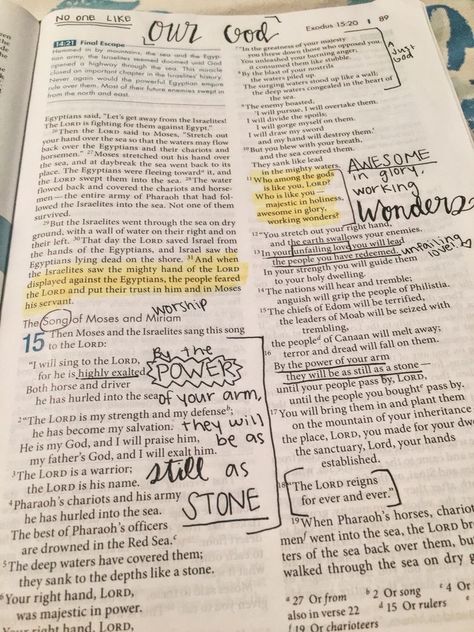 NO ONE LIKE our God
Exodus 15:20 89
14:21 Final Escape
Hemmed in by mountains, the sea and the Egyp-
tian army, the Israelites seemed doomed until God
opened a highway through the sea. This miracle
closed an important chapter in the Israelites' history.
Never again would the powerful Egyptian empire
rule over them. Most of their future enemies swept in
from the north and east.
Egyptians said, "Let's get away from the Israelites!
The LORD is fighting for them against Egypt."
26Then the LORD said to Moses, "Stretch out
your hand over the sea so that the waters may flow
back over the Egyptians and their chariots and
horsemen." 27Moses stretched out his hand over
the sea, and at daybreak the sea went back to its
place. The Egyptians were fleeing toward a it, and
the LORD swept them into the sea. 28The water
flowed back and covered the chariots and horse-
men—the entire army of Pharaoh that had fol-
lowed the Israelites into the sea. Not one of them
survived.
29But the Israelites went through the sea on dry
ground, with a wall of water on their right and on
their left. 30That day the LORD saved Israel from
the hands of the Egyptians, and Israel saw the
Egyptians lying dead on the shore. 31And when
the Israelites saw the mighty hand of the LORD
displayed against the Egyptians, the people feared
the LORD and put their trust in him and in Moses
his servant.
worship
The Song of Moses and Miriam
15 Then Moses and the Israelites sang this song
to the LORD:
"I will sing to the LORD,
for he is highly exalted.
Both horse and driver
he has hurled into the sea.
2"The LORD is my strength and my defense b;
he has become my salvation.
He is my God, and I will praise him,
my father's God, and I will exalt him.
3The LORD is a warrior;
the LORD is his name.
4Pharaoh's chariots and his army
he has hurled into the sea.
The best of Pharaoh's officers
are drowned in the Red Sea. c
5The deep waters have covered them;
they sank to the depths like a stone.
6Your right hand, LORD,
was majestic in power.
Your right hand, LORD,
By the
POWER
of your arm,
they will
be as
still as
STONE
7"In the greatness of your majesty
you threw down those who opposed you.
You unleashed your burning anger;
it consumed them like stubble.
8By the blast of your nostrils
the waters piled up.
The surging waters stood up like a wall;
the deep waters congealed in the heart of
the sea.
A
Just
God
9The enemy boasted,
'I will pursue, I will overtake them.
I will divide the spoils;
I will gorge myself on them.
I will draw my sword
and my hand will destroy them.'
10But you blew with your breath,
and the sea covered them.
They sank like lead
in the mighty waters.
11Who among the gods
is like you, LORD?
Who is like you—
majestic in holiness,
awesome in glory,
working wonders?
AWESOME
in glory,
working
Wonders
12"You stretch out your right hand,
and the earth swallows your enemies.
13In your unfailing love you will lead
the people you have redeemed.
In your strength you will guide them
to your holy dwelling.
unfailing
love
14The nations will hear and tremble;
anguish will grip the people of Philistia.
15The chiefs of Edom will be terrified,
the leaders of Moab will be seized with
trembling,
the people d of Canaan will melt away;
16 terror and dread will fall on them.
By the power of your arm
they will be as still as a stone—
until your people pass by, LORD,
until the people you bought e pass by.
17You will bring them in and plant them
on the mountain of your inheritance
the place, LORD, you made for your dwe
the sanctuary, Lord, your hands
established.
18"The LORD reigns
for ever and ever."
19When Pharaoh's horses, chariot
men f went into the sea, the LORD br
ters of the sea back over them, bu
walked through the sea on dry g
a 27 Or from b 2 Or song c 4 Or
also in verse 22 d 15 Or rulers
f 19 Or charioteers